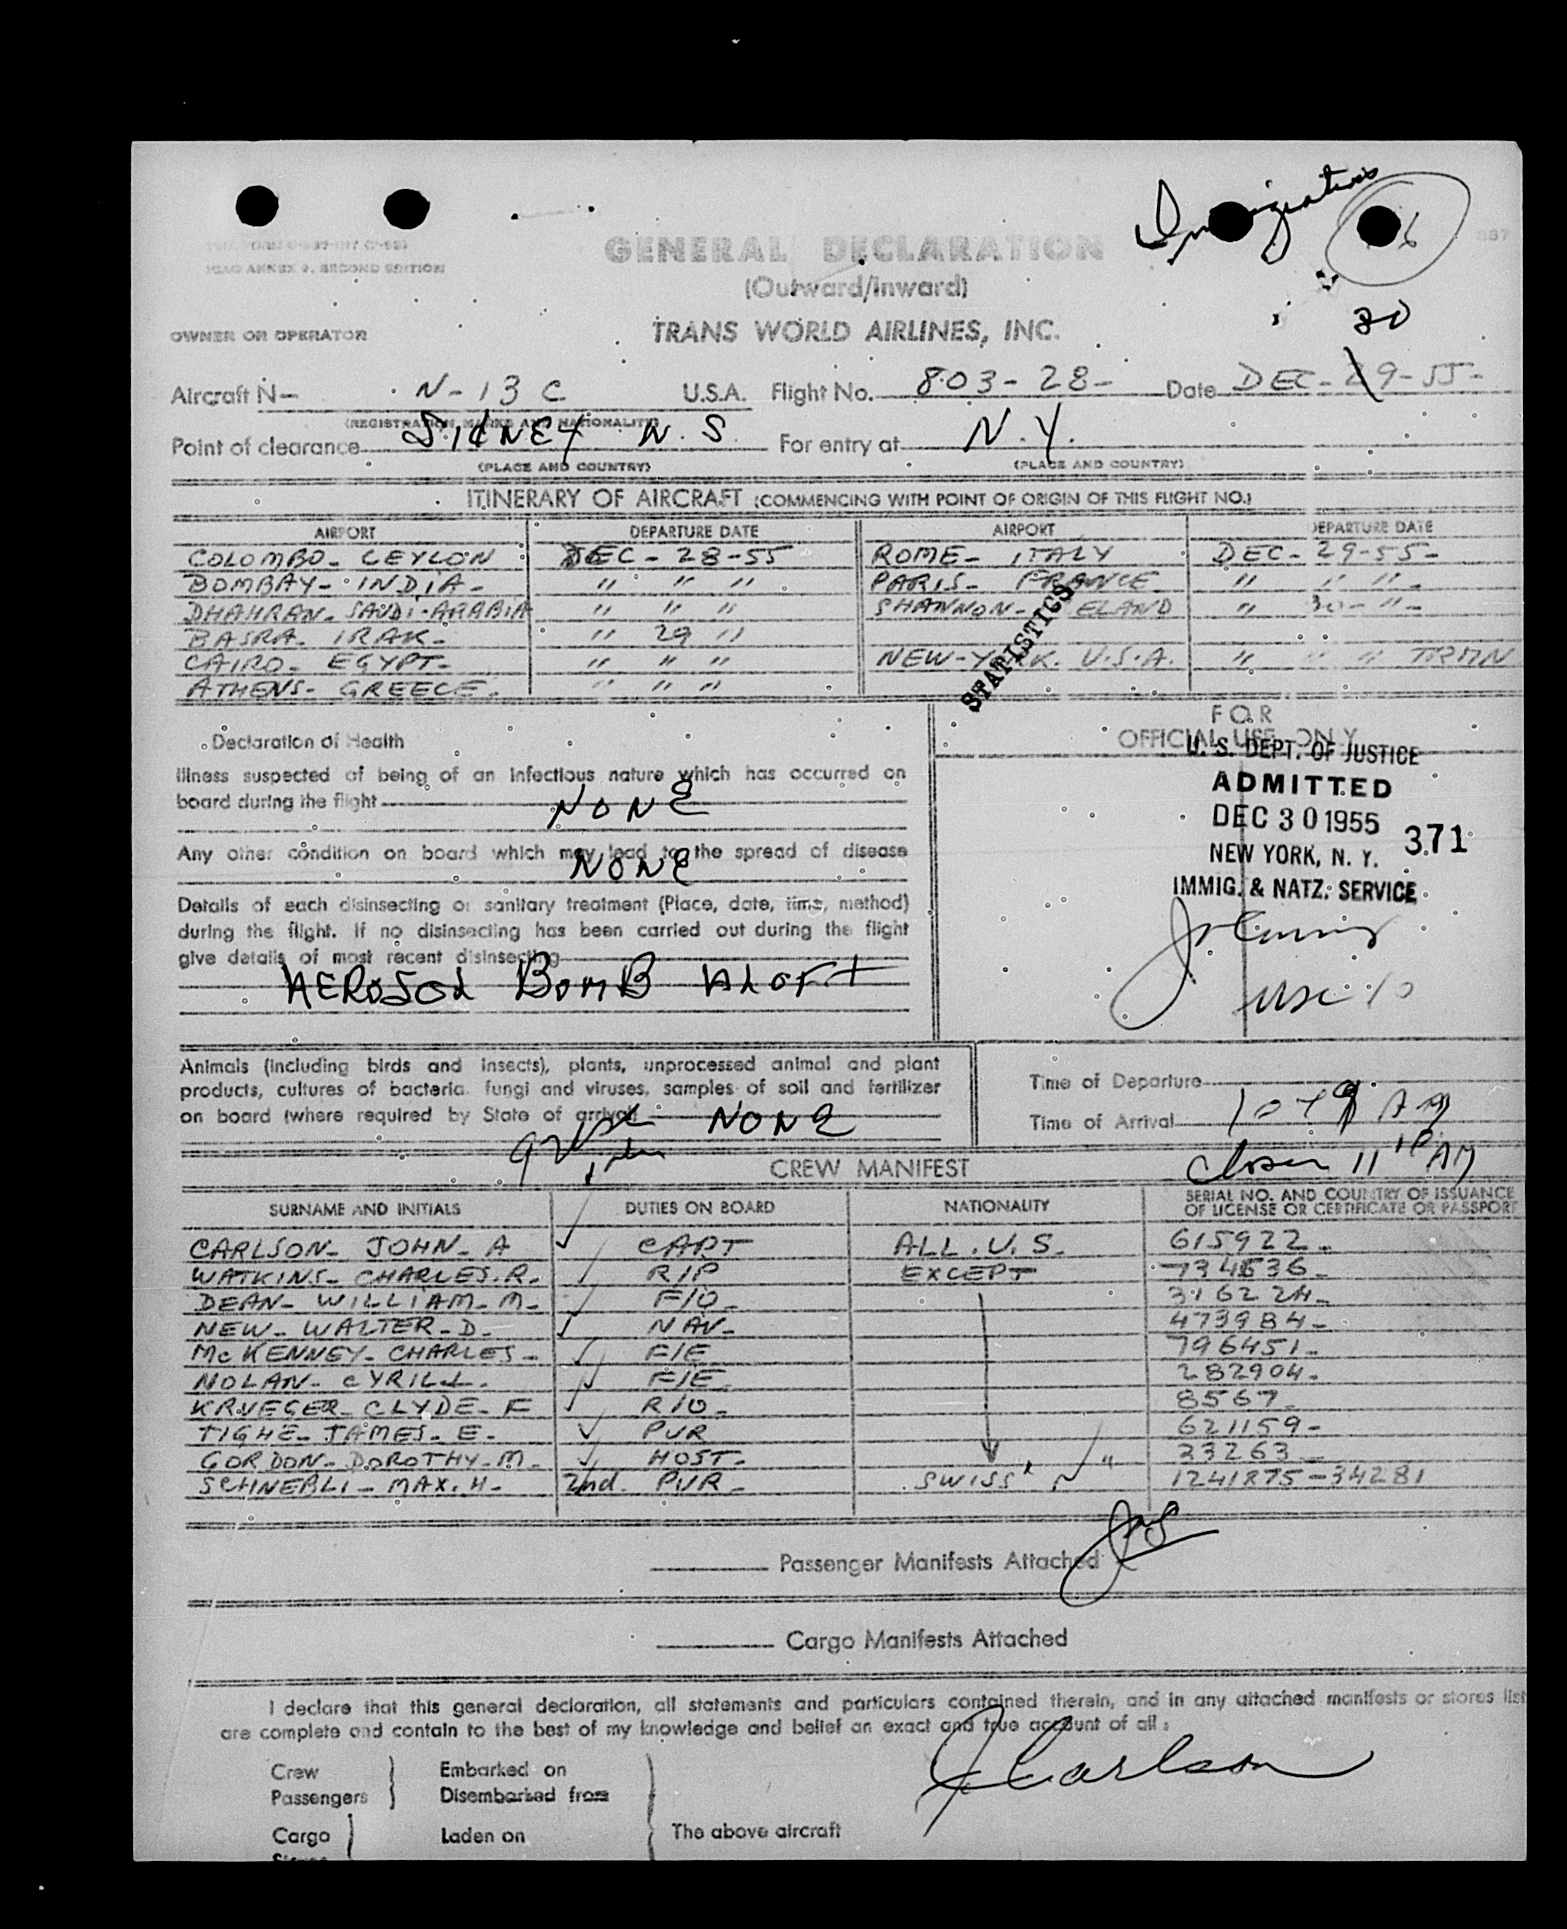 Immigration
ICAO ANNEX 9, SECOND EDITION
GENERAL DECLARATION
(Outward/Inward)
OWNER OR OPERATOR
TRANS WORLD AIRLINES, INC.
30
Aircraft N- N-13C U.S.A. Flight No. 803-28- Date DEC-29-55-
(REGISTRATION MARKS AND NATIONALITY)
Point of clearance SIDNEY N.S. For entry at N.Y.
(PLACE AND COUNTRY) (PLACE AND COUNTRY)
ITINERARY OF AIRCRAFT (COMMENCING WITH POINT OF ORIGIN OF THIS FLIGHT NO.)
AIRPORT DEPARTURE DATE AIRPORT DEPARTURE DATE
COLOMBO- CEYLON DEC-28-55 ROME- ITALY DEC-29-55-
BOMBAY- INDIA- " " " PARIS- FRANCE " " "-
DHAHRAN- SAUDI-ARABIA " " " SHANNON- ELAND " 30-"-
BASRA- IRAK- " 29 "
CAIRO- EGYPT- " " " NEW-YORK. U.S.A. " " " TRMN
ATHENS- GREECE. " " "
STATISTICS
Declaration of Health
FOR
OFFICIAL USE ONLY
Illness suspected of being of an infectious nature which has occurred on
board during the flight NONE
Any other condition on board which may lead to the spread of disease
NONE
Details of each disinsecting or sanitary treatment (Place, date, time, method)
during the flight. If no disinsecting has been carried out during the flight
give details of most recent disinsecting
AEROSOL BOMB ALOFT
U. S. DEPT. OF JUSTICE
ADMITTED
DEC 30 1955 371
NEW YORK, N. Y.
IMMIG. & NATZ. SERVICE
Animals (including birds and insects), plants, unprocessed animal and plant
products, cultures of bacteria, fungi and viruses, samples of soil and fertilizer
on board (where required by State of arrival NONE
Time of Departure
Time of Arrival 1049 AM
CREW MANIFEST
Closer 11 10 AM
SURNAME AND INITIALS DUTIES ON BOARD NATIONALITY SERIAL NO. AND COUNTRY OF ISSUANCE OF LICENSE OR CERTIFICATE OR PASSPORT
CARLSON- JOHN- A CAPT ALL. U.S. 615922-
WATKINS- CHARLES.R. R/P EXCEPT 734636-
DEAN- WILLIAM-M- F/O- 316224-
NEW- WALTER-D- NAV- 473984-
McKENNEY- CHARLES- F/E 796451-
NOLAN- CYRILL. F/E- 282904-
KRUEGER- CLYDE-F R/O- 8567-
TIGHE- JAMES-E- PUR 621159-
GORDON- DOROTHY-M- HOST- 23263-
SCHNEBLI- MAX.H- 2nd PUR- SWISS 1241875-34281
Passenger Manifests Attached
Cargo Manifests Attached
I declare that this general declaration, all statements and particulars contained therein, and in any attached manifests or stores list
are complete and contain to the best of my knowledge and belief an exact and true account of all:
J A Carlson
Crew Embarked on
Passengers Disembarked from
Cargo Laden on The above aircraft